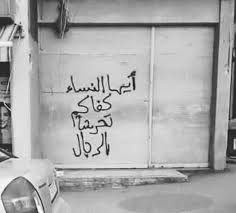 أيها النساء
كفاكم
تحرشاً
بالرجال